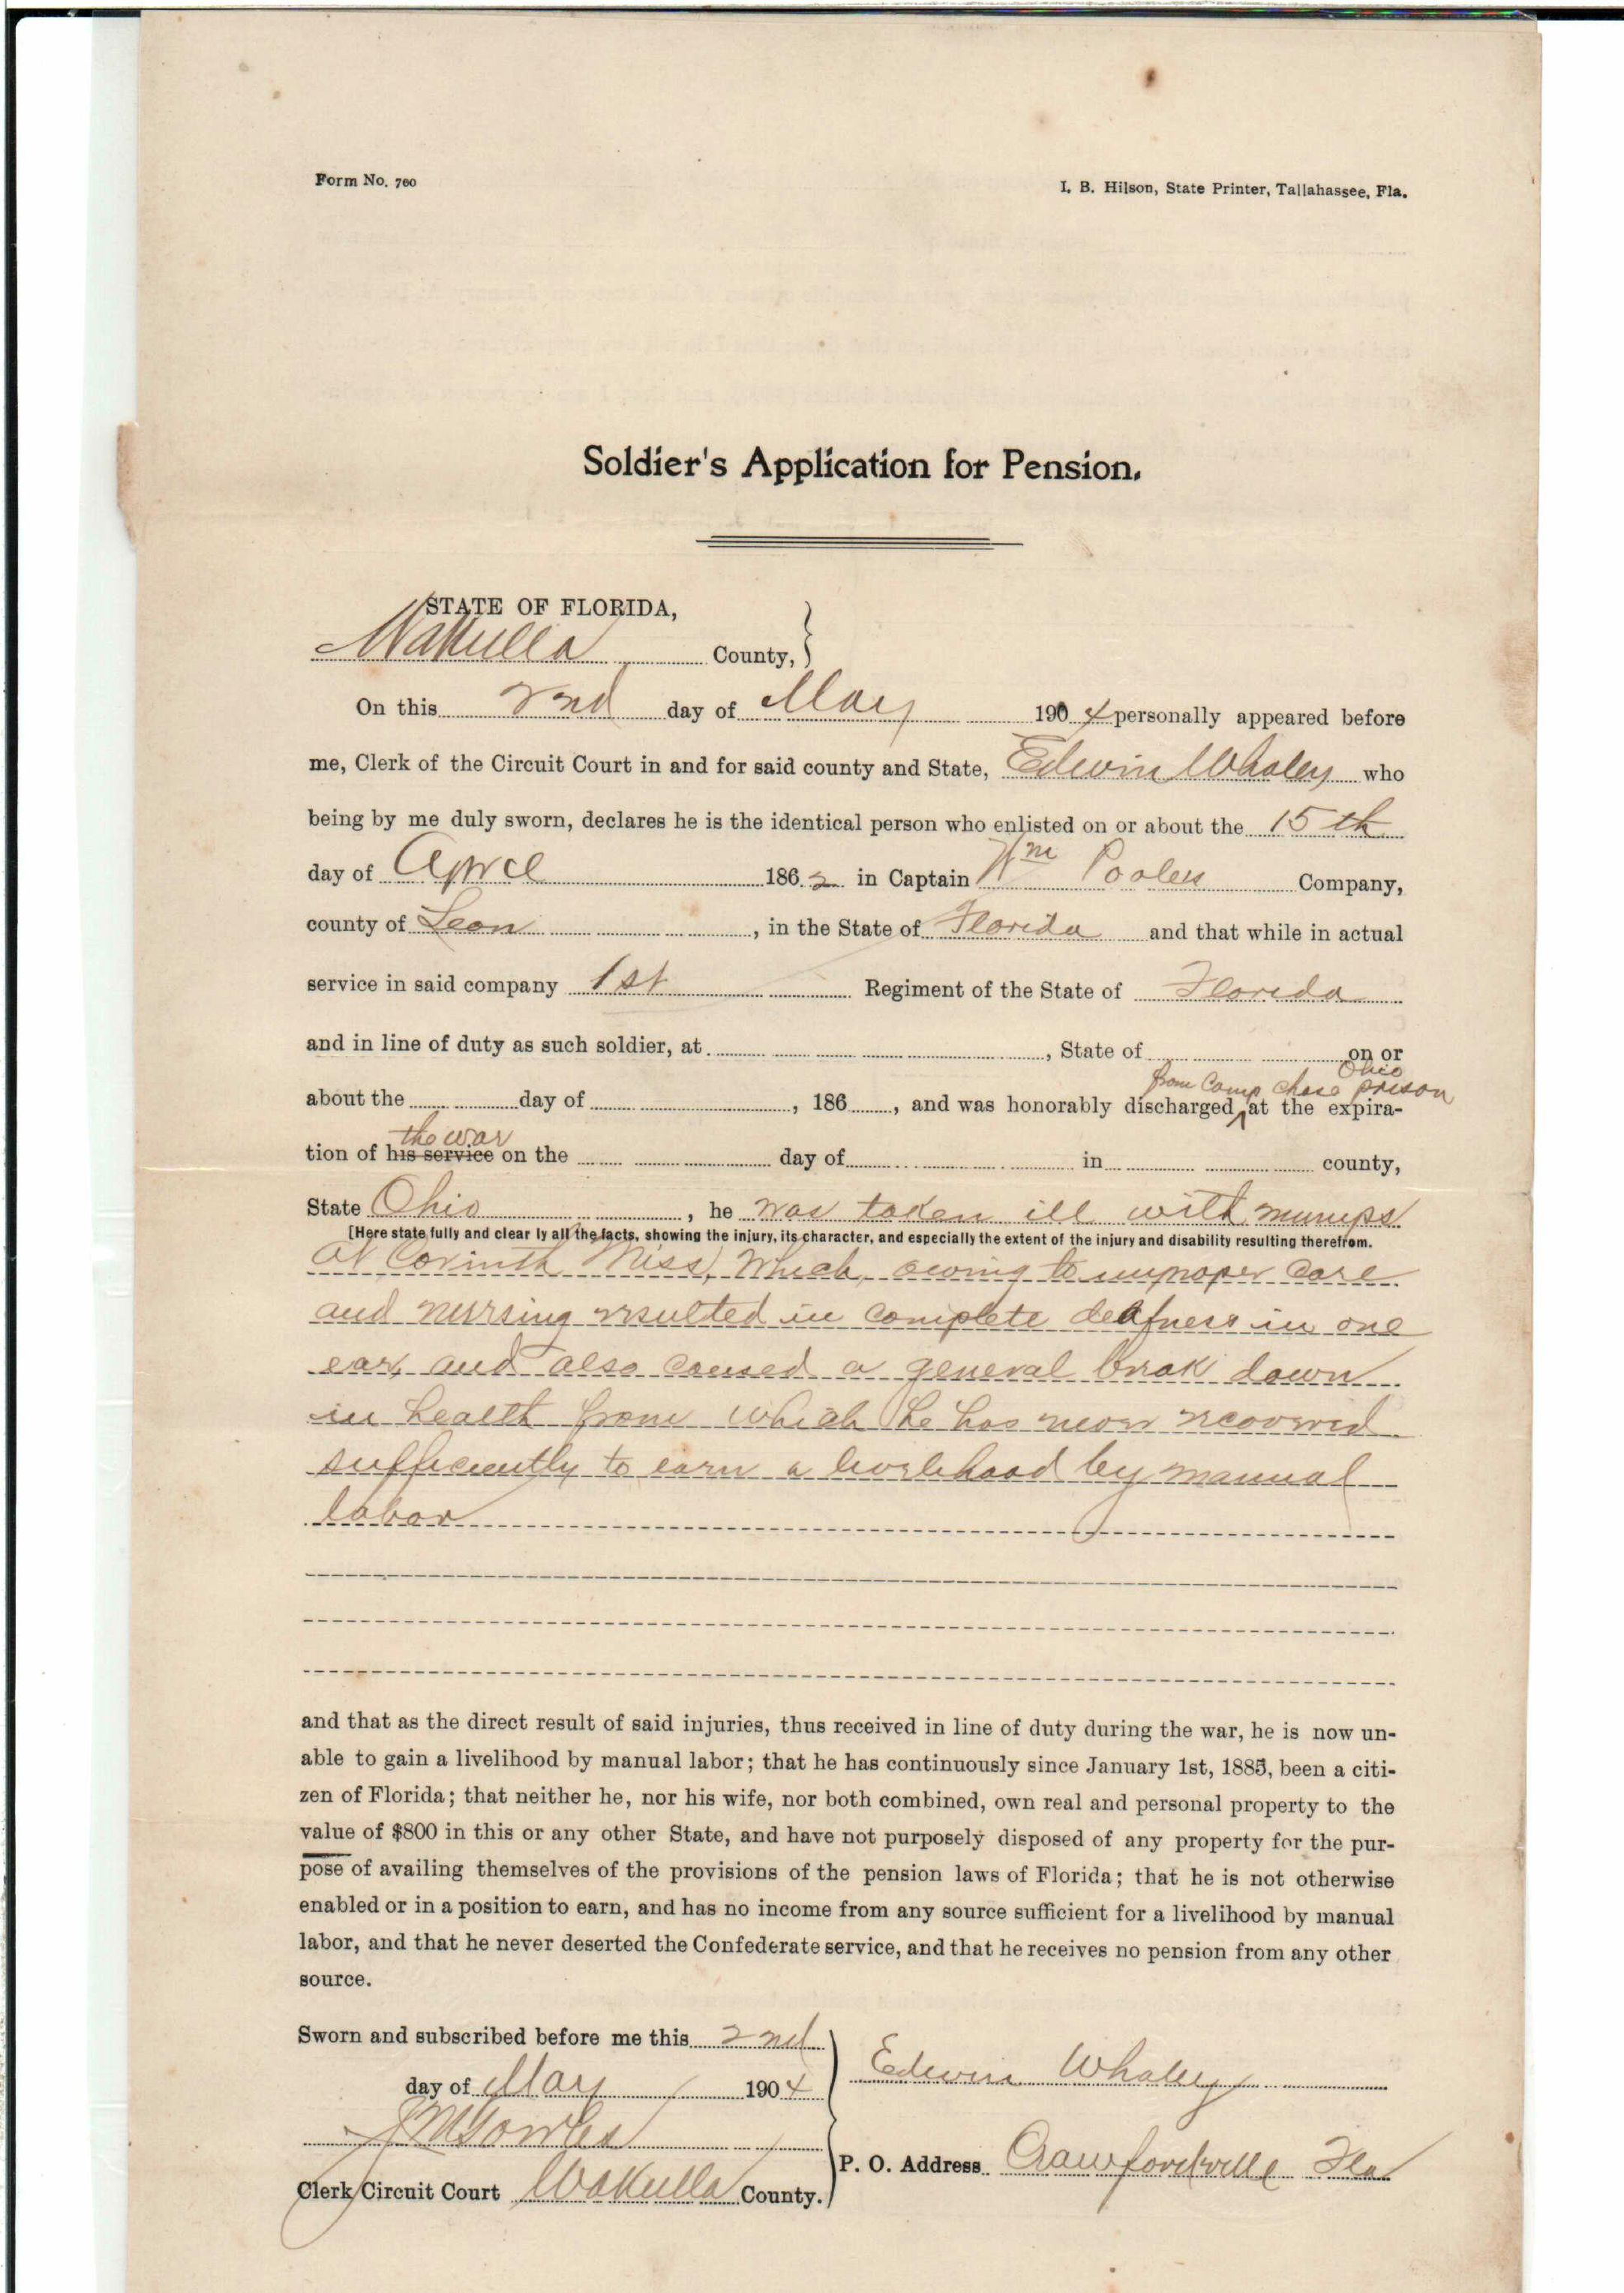 Form No. 760
I. B. Hilson, State Printer, Tallahassee, Fla.
Soldier's Application for Pension.
STATE OF FLORIDA,
Wakulla County,
On this 2nd day of May 1904 personally appeared before
me, Clerk of the Circuit Court in and for said county and State, Edwin Whaley who
being by me duly sworn, declares he is the identical person who enlisted on or about the 15th
day of April 1862 in Captain Wm Pooles Company,
county of Leon, in the State of Florida and that while in actual
service in said company 1st Regiment of the State of Florida
and in line of duty as such soldier, at , State of on or
from Camp Chase Ohio prison
about the day of , 186 , and was honorably discharged at the expira-
the war
tion of his service on the day of in county,
State Ohio, he was taken ill with mumps
[Here state fully and clear ly all the facts, showing the injury, its character, and especially the extent of the injury and disability resulting therefrom.
at Corinth Miss, which, owing to improper care
and nursing resulted in complete deafness in one
ear, and also caused a general break down
in health from which he has never recovered
sufficiently to earn a livelihood by manual
labor
and that as the direct result of said injuries, thus received in line of duty during the war, he is now un-
able to gain a livelihood by manual labor; that he has continuously since January 1st, 1885, been a citi-
zen of Florida; that neither he, nor his wife, nor both combined, own real and personal property to the
value of $800 in this or any other State, and have not purposely disposed of any property for the pur-
pose of availing themselves of the provisions of the pension laws of Florida; that he is not otherwise
enabled or in a position to earn, and has no income from any source sufficient for a livelihood by manual
labor, and that he never deserted the Confederate service, and that he receives no pension from any other
source.
Sworn and subscribed before me this 2nd
day of May 1904
Edwin Whaley
Clerk Circuit Court Wakulla County.
P. O. Address Crawfordville Fla